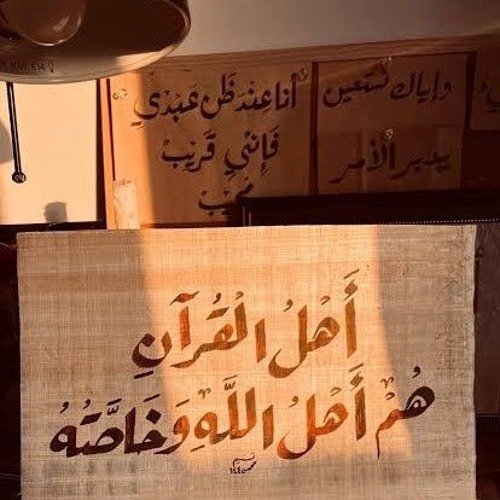 أنا عند ظن عبدي
فَإِنِّي قَرِيبٌ
وإياك نستعين
يدبر الأمر
أَهْلُ الْقُرْآنِ
هُمْ أَهْلُ اللَّهِ وَخَاصَّتُهُ